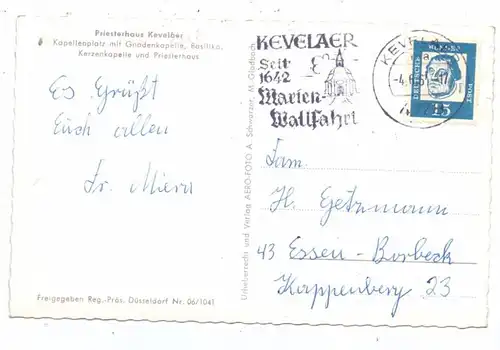 Priesterhaus Kevelaer
Kapellenplatz mit Gnadenkapelle, Basilika,
Kerzenkapelle und Priesterhaus
Es Grüßt
Euch allen
Sr. Miera
Freigegeben Reg.-Präs. Düsseldorf Nr. 06/1041
Urheberrecht und Verlag AERO-FOTO A. Schwarzer, M.Gladbach
KEVELAER
Seit
1642
Marien-
Wallfahrt
KEVELAER
DEUTSCHE
BUNDES
POST
15
Fam.
H. Getzmann
43 Essen-Borbeck
Kappenberg 23